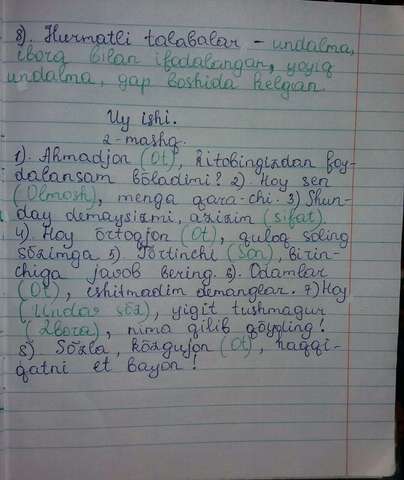 8). Hurmatli talabalar – undalma,
ibora bilan ifodalangan, yoyiq
undalma, gap boshida kelgan.
Uy ishi.
2-mashq.
1). Ahmadjon (Ot), kitobingizdan foy-
dalansam bòladimi? 2) Hoy sen
(Olmosh), menga qara-chi. 3) Shun-
day demaysizmi, azizim (sifat).
4). Hoy òrtoqjon (Ot), quloq soling
sòzimga. 5) Tòrtinchi (Son), birin-
chiga javob bering. 6). Odamlar
(Ot), eshitmadim demanglar. 7) Hoy
(Undov sòz), yigit tushmagur
(Ibora), nima qilib qòyding!
8) Sòzla, kòzgujon (Ot), haqqi-
qatni et bayon!